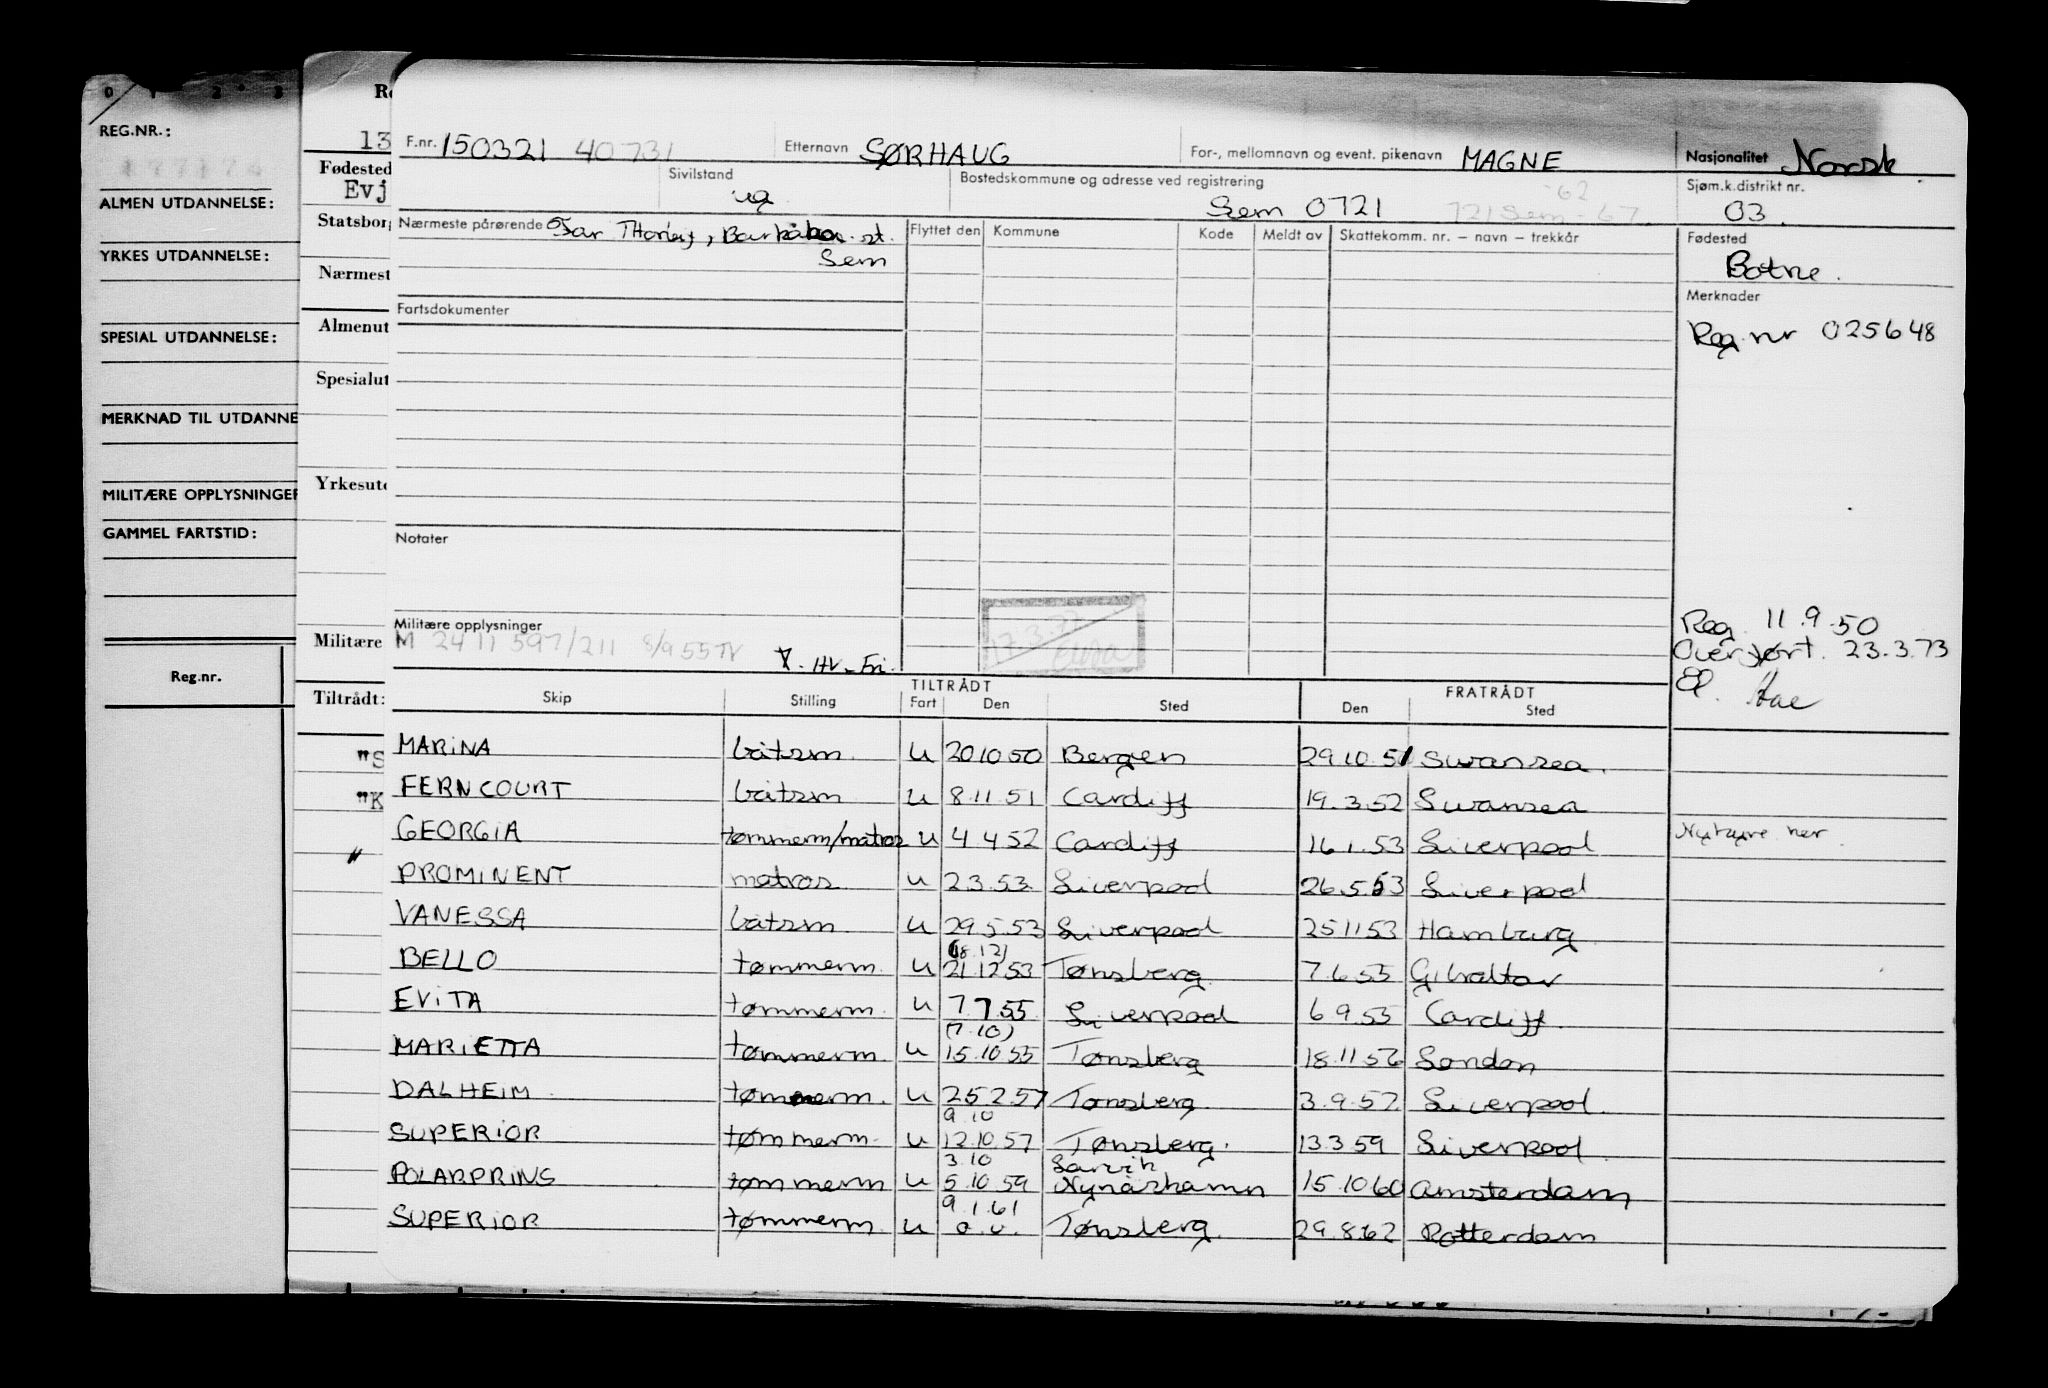 0 1 2 3
REG.NR.:
ALMEN UTDANNELSE:
YRKES UTDANNELSE:
SPESIAL UTDANNELSE:
MERKNAD TIL UTDANNE
MILITÆRE OPPLYSNINGER
GAMMEL FARTSTID:
Reg.nr.
Re
13
Fødested
Evj
Statsborg
Nærmest
Almenut
Spesialut
Yrkesutd
Militære
Tiltrådt:
"S
"K
"
F.nr. 150321 40731 Etternavn SØRHAUG For-, mellomnavn og event. pikenavn MAGNE Nasjonalitet Norsk
Sivilstand ug Bostedskommune og adresse ved registrering Sem 0721 721 Sem - 67 -62 Sjøm.k.distrikt nr. 03.
Nærmeste pårørende Far st. Flyttet den Kommune Kode Meldt av Skattekomm. nr. – navn – trekkår Fødested
Sem Botne.
Merknader
Fartsdokumenter
Reg. nr 025648
Notater
Militære opplysninger
M 2411 597/211 8/9 55 TV HV-Fri.
Reg. 11.9.50
Overført. 23.3.73
TILTRÅDT FRATRÅDT
Skip Stilling Fart Den Sted Den Sted
MARINA båtsm. u 20.10.50 Bergen 29.10.51 Swansea.
FERNCOURT båtsm u 8.11.51 Cardiff 19.3.52 Swansea
GEORGIA tømmerm/matros u 4.4.52 Cardiff 16.1.53 Liverpool Nyhyre her
PROMINENT matros u 2.3.53 Liverpool 26.5.53 Liverpool
VANESSA båtsm. u 29.5.53 Liverpool 25.11.53 Hamburg
(8.12)
BELLO tømmerm. u 21.12.53 Tønsberg 7.6.55 Gibraltar
EVITA tømmerm. u 7.7.55 Liverpool 6.9.55 Cardiff.
(7.10)
MARIETTA tømmerm. u 15.10.55 Tønsberg 18.11.56 London
DALHEIM tømmerm. u 25.2.57 Tønsberg 3.9.57 Liverpool.
9.10
SUPERIOR tømmerm. u 12.10.57 Tønsberg. 13.3.59 Liverpool
3.10 Larvik
POLARPRINS tømmerm u 5.10.59 Nynäshamn 15.10.60 Amsterdam
9.1.61
SUPERIOR tømmerm. u o.v. Tønsberg. 29.8.62 Rotterdam